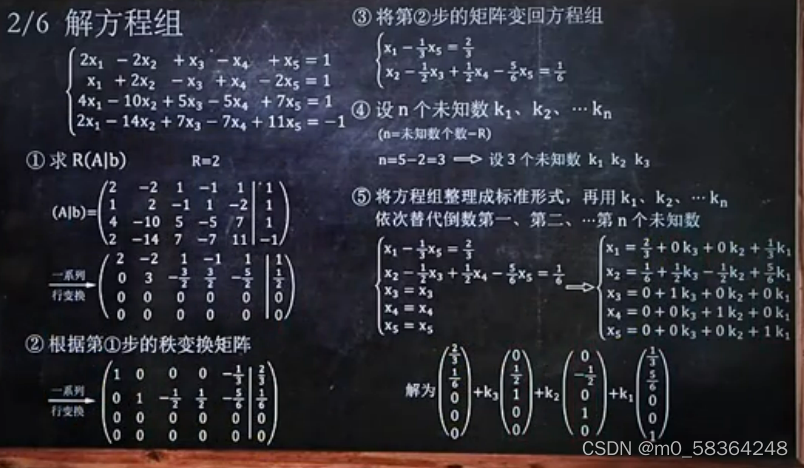 2/6 解方程组
2x₁ − 2x₂ + x₃ − x₄ + x₅ = 1
x₁ + 2x₂ − x₃ + x₄ − 2x₅ = 1
4x₁ − 10x₂ + 5x₃ − 5x₄ + 7x₅ = 1
2x₁ − 14x₂ + 7x₃ − 7x₄ + 11x₅ = −1
① 求 R(A|b) R=2
(A|b)=
2 −2 1 −1 1 1
1 2 −1 1 −2 1
4 −10 5 −5 7 1
2 −14 7 −7 11 −1
一系列
行变换
2 −2 1 −1 1 1
0 3 −3/2 3/2 −5/2 1/2
0 0 0 0 0 0
0 0 0 0 0 0
② 根据第①步的秩变换矩阵
一系列
行变换
1 0 0 0 −1/3 2/3
0 1 −1/2 1/2 −5/6 1/6
0 0 0 0 0 0
0 0 0 0 0 0
③ 将第②步的矩阵变回方程组
x₁ − 1/3x₅ = 2/3
x₂ − 1/2x₃ + 1/2x₄ − 5/6x₅ = 1/6
④ 设 n 个未知数 k₁、k₂、⋯ kₙ
(n=未知数个数−R)
n=5−2=3 ⟹ 设 3 个未知数 k₁ k₂ k₃
⑤ 将方程组整理成标准形式，再用 k₁、k₂、⋯ kₙ
依次替代倒数第一、第二、⋯第 n 个未知数
x₁ − 1/3x₅ = 2/3
x₂ − 1/2x₃ + 1/2x₄ − 5/6x₅ = 1/6
x₃ = x₃
x₄ = x₄
x₅ = x₅
⟹
x₁ = 2/3 + 0k₃ + 0k₂ + 1/3k₁
x₂ = 1/6 + 1/2k₃ − 1/2k₂ + 5/6k₁
x₃ = 0 + 1k₃ + 0k₂ + 0k₁
x₄ = 0 + 0k₃ + 1k₂ + 0k₁
x₅ = 0 + 0k₃ + 0k₂ + 1k₁
解为 (2/3 1/6 0 0 0) +k₃ (0 1/2 1 0 0) +k₂ (0 −1/2 0 1 0) +k₁ (1/3 5/6 0 0 1)
CSDN @m0_58364248